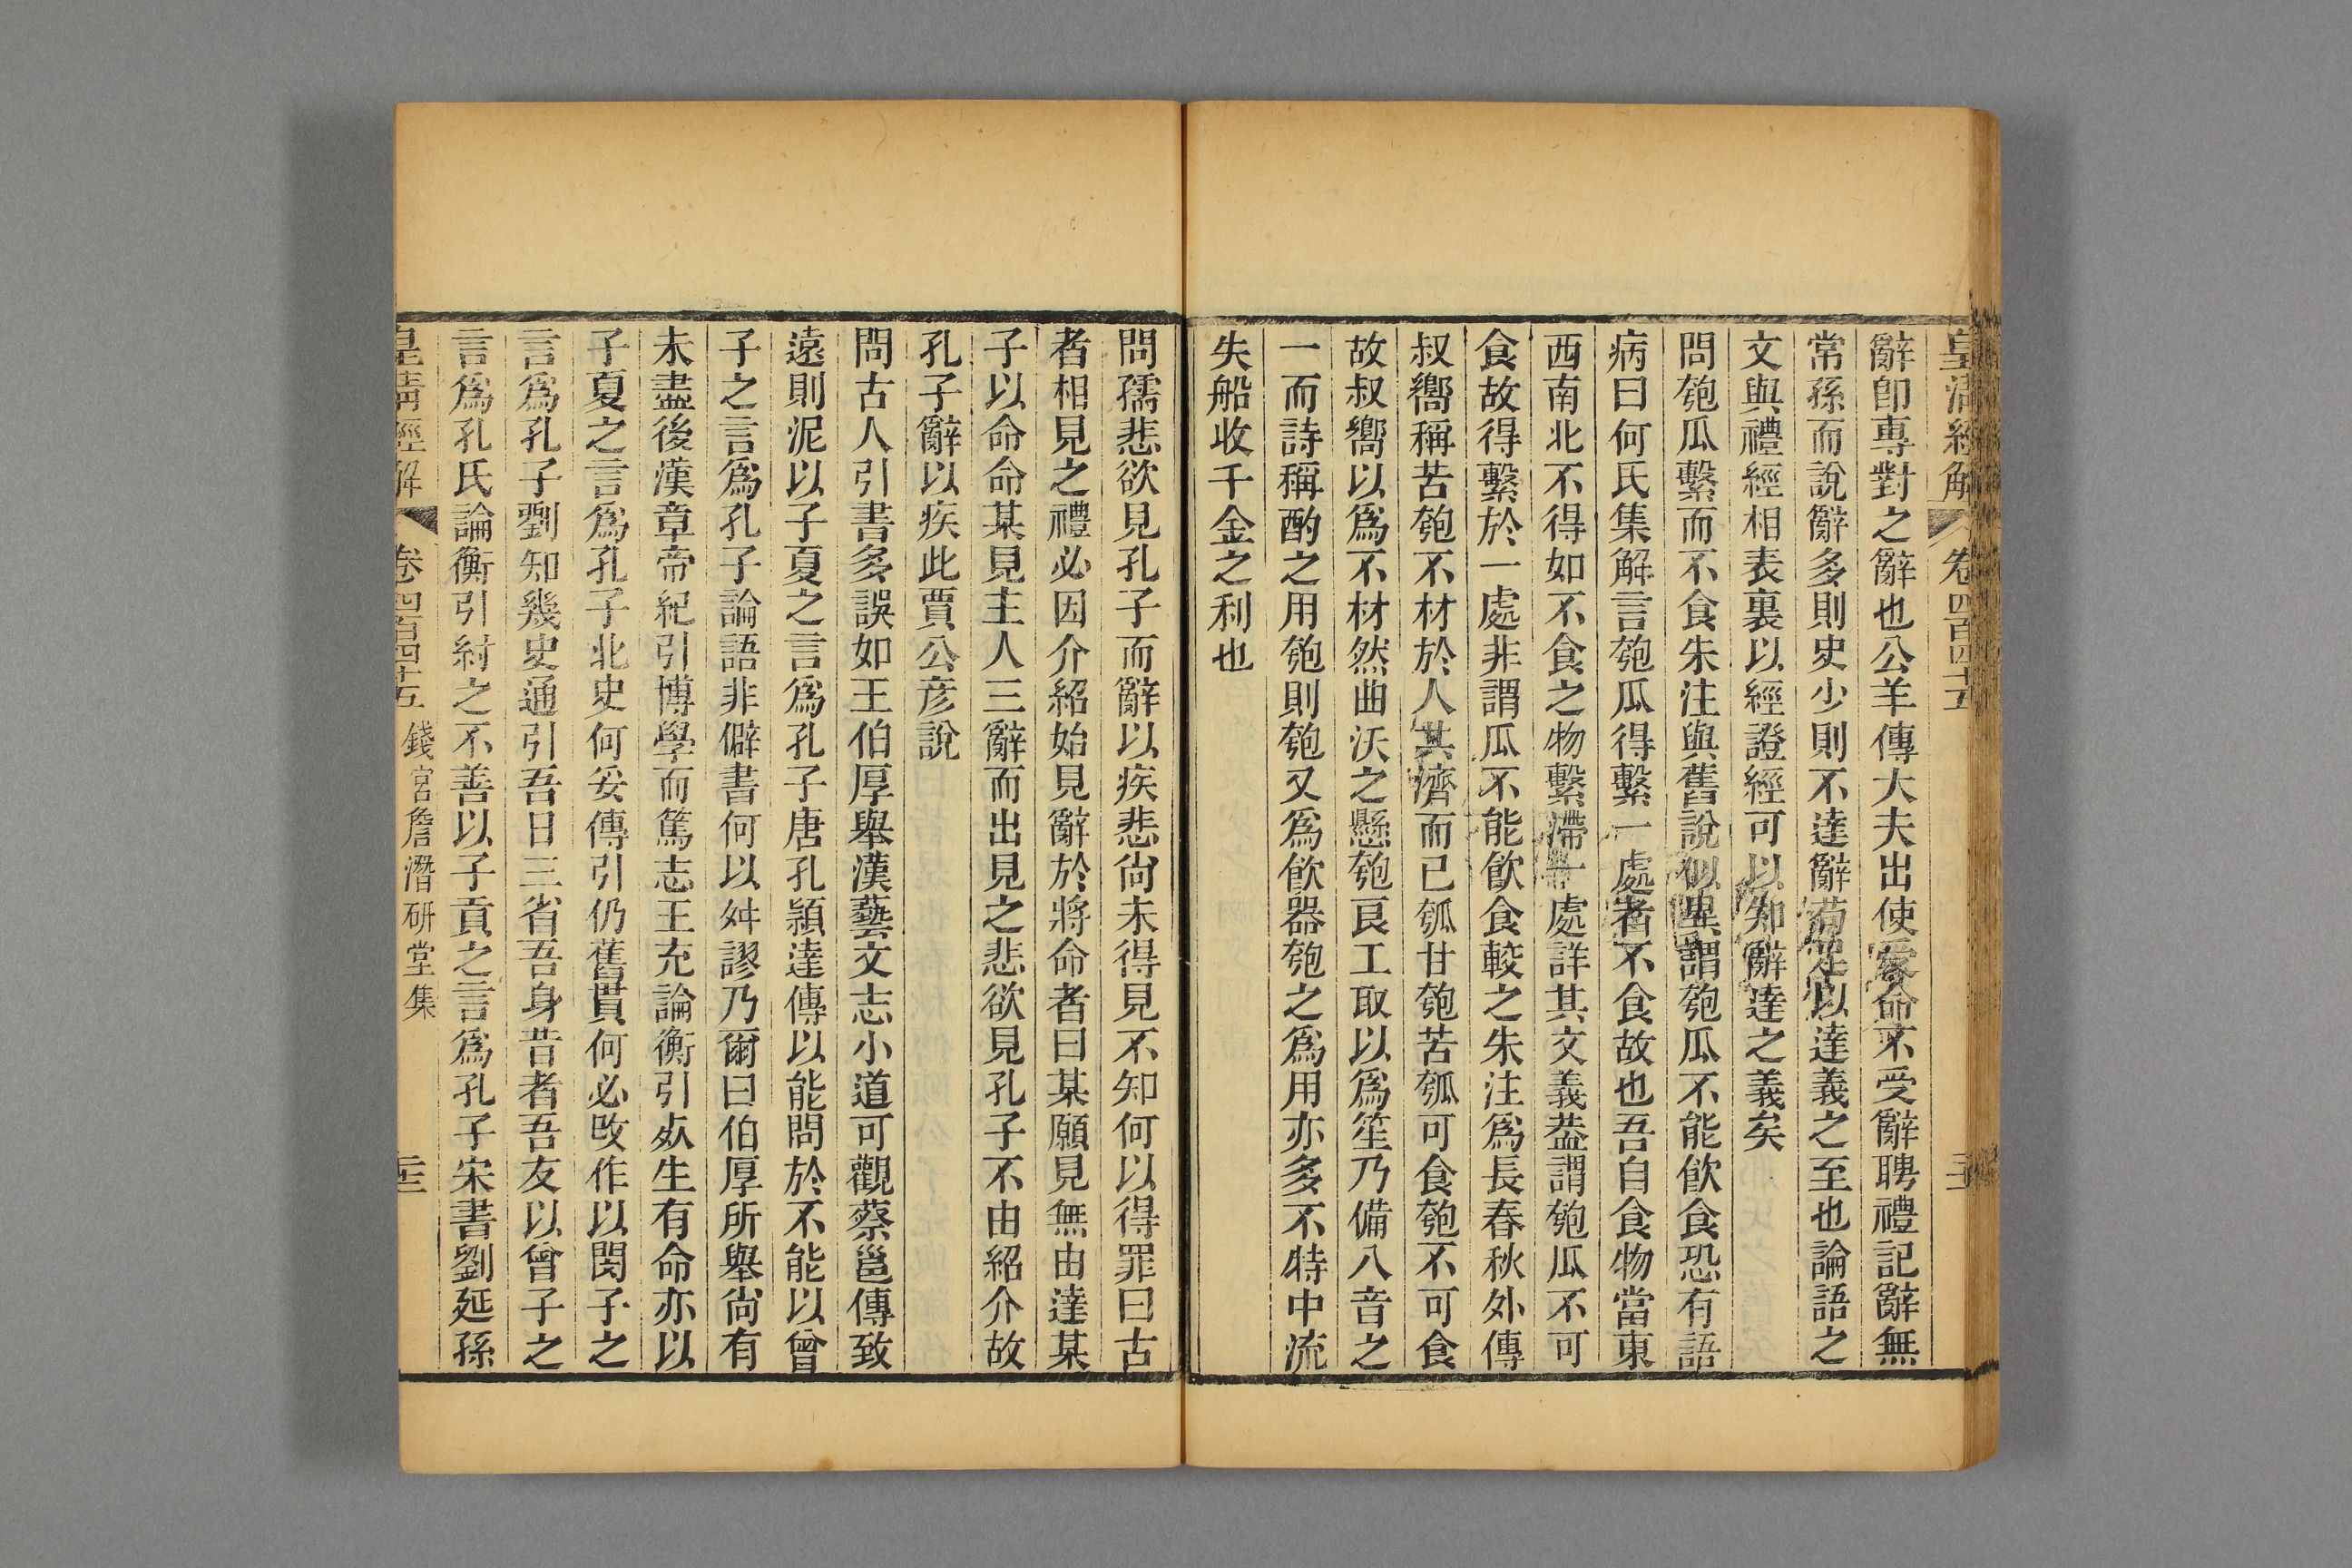 皇清經解 卷四百四十五
辭卽專對之辭也公羊傳大夫出使受命不受辭聘禮記辭無
常孫而說辭多則史少則不達辭苟足以達義之至也論語之
文與禮經相表裏以經證經可以知辭達之義矣
問匏瓜繫而不食朱注與舊說似異謂匏瓜不能飮食恐有語
病曰何氏集解言匏瓜得繫一處者不食故也吾自食物當東
西南北不得如不食之物繫滯一處詳其文義葢謂匏瓜不可
食故得繫於一處非謂瓜不能飮食較之朱注爲長春秋外傳
叔嚮稱苦匏不材於人共濟而已瓠甘匏苦瓠可食匏不可食
故叔嚮以爲不材然曲沃之懸匏良工取以爲笙乃備八音之
一而詩稱酌之用匏則匏又爲飮器匏之爲用亦多不特中流
失船收千金之利也
問孺悲欲見孔子而辭以疾悲尙未得見不知何以得罪曰古
者相見之禮必因介紹始見辭於將命者曰某願見無由達某
子以命命某見主人三辭而出見之悲欲見孔子不由紹介故
孔子辭以疾此賈公彦說
問古人引書多誤如王伯厚舉漢藝文志小道可觀蔡邕傳致
遠則泥以子夏之言爲孔子唐孔穎達傳以能問於不能以曾
子之言爲孔子論語非僻書何以舛謬乃爾曰伯厚所舉尙有
未盡後漢章帝紀引博學而篤志王充論衡引死生有命亦以
子夏之言爲孔子北史何妥傳引仍舊貫何必改作以閔子之
言爲孔子劉知幾史通引吾日三省吾身昔者吾友以曾子之
言爲孔氏論衡引紂之不善以子貢之言爲孔子宋書劉延孫
皇清經解 卷四百四十五 錢宮詹潛研堂集 二十三